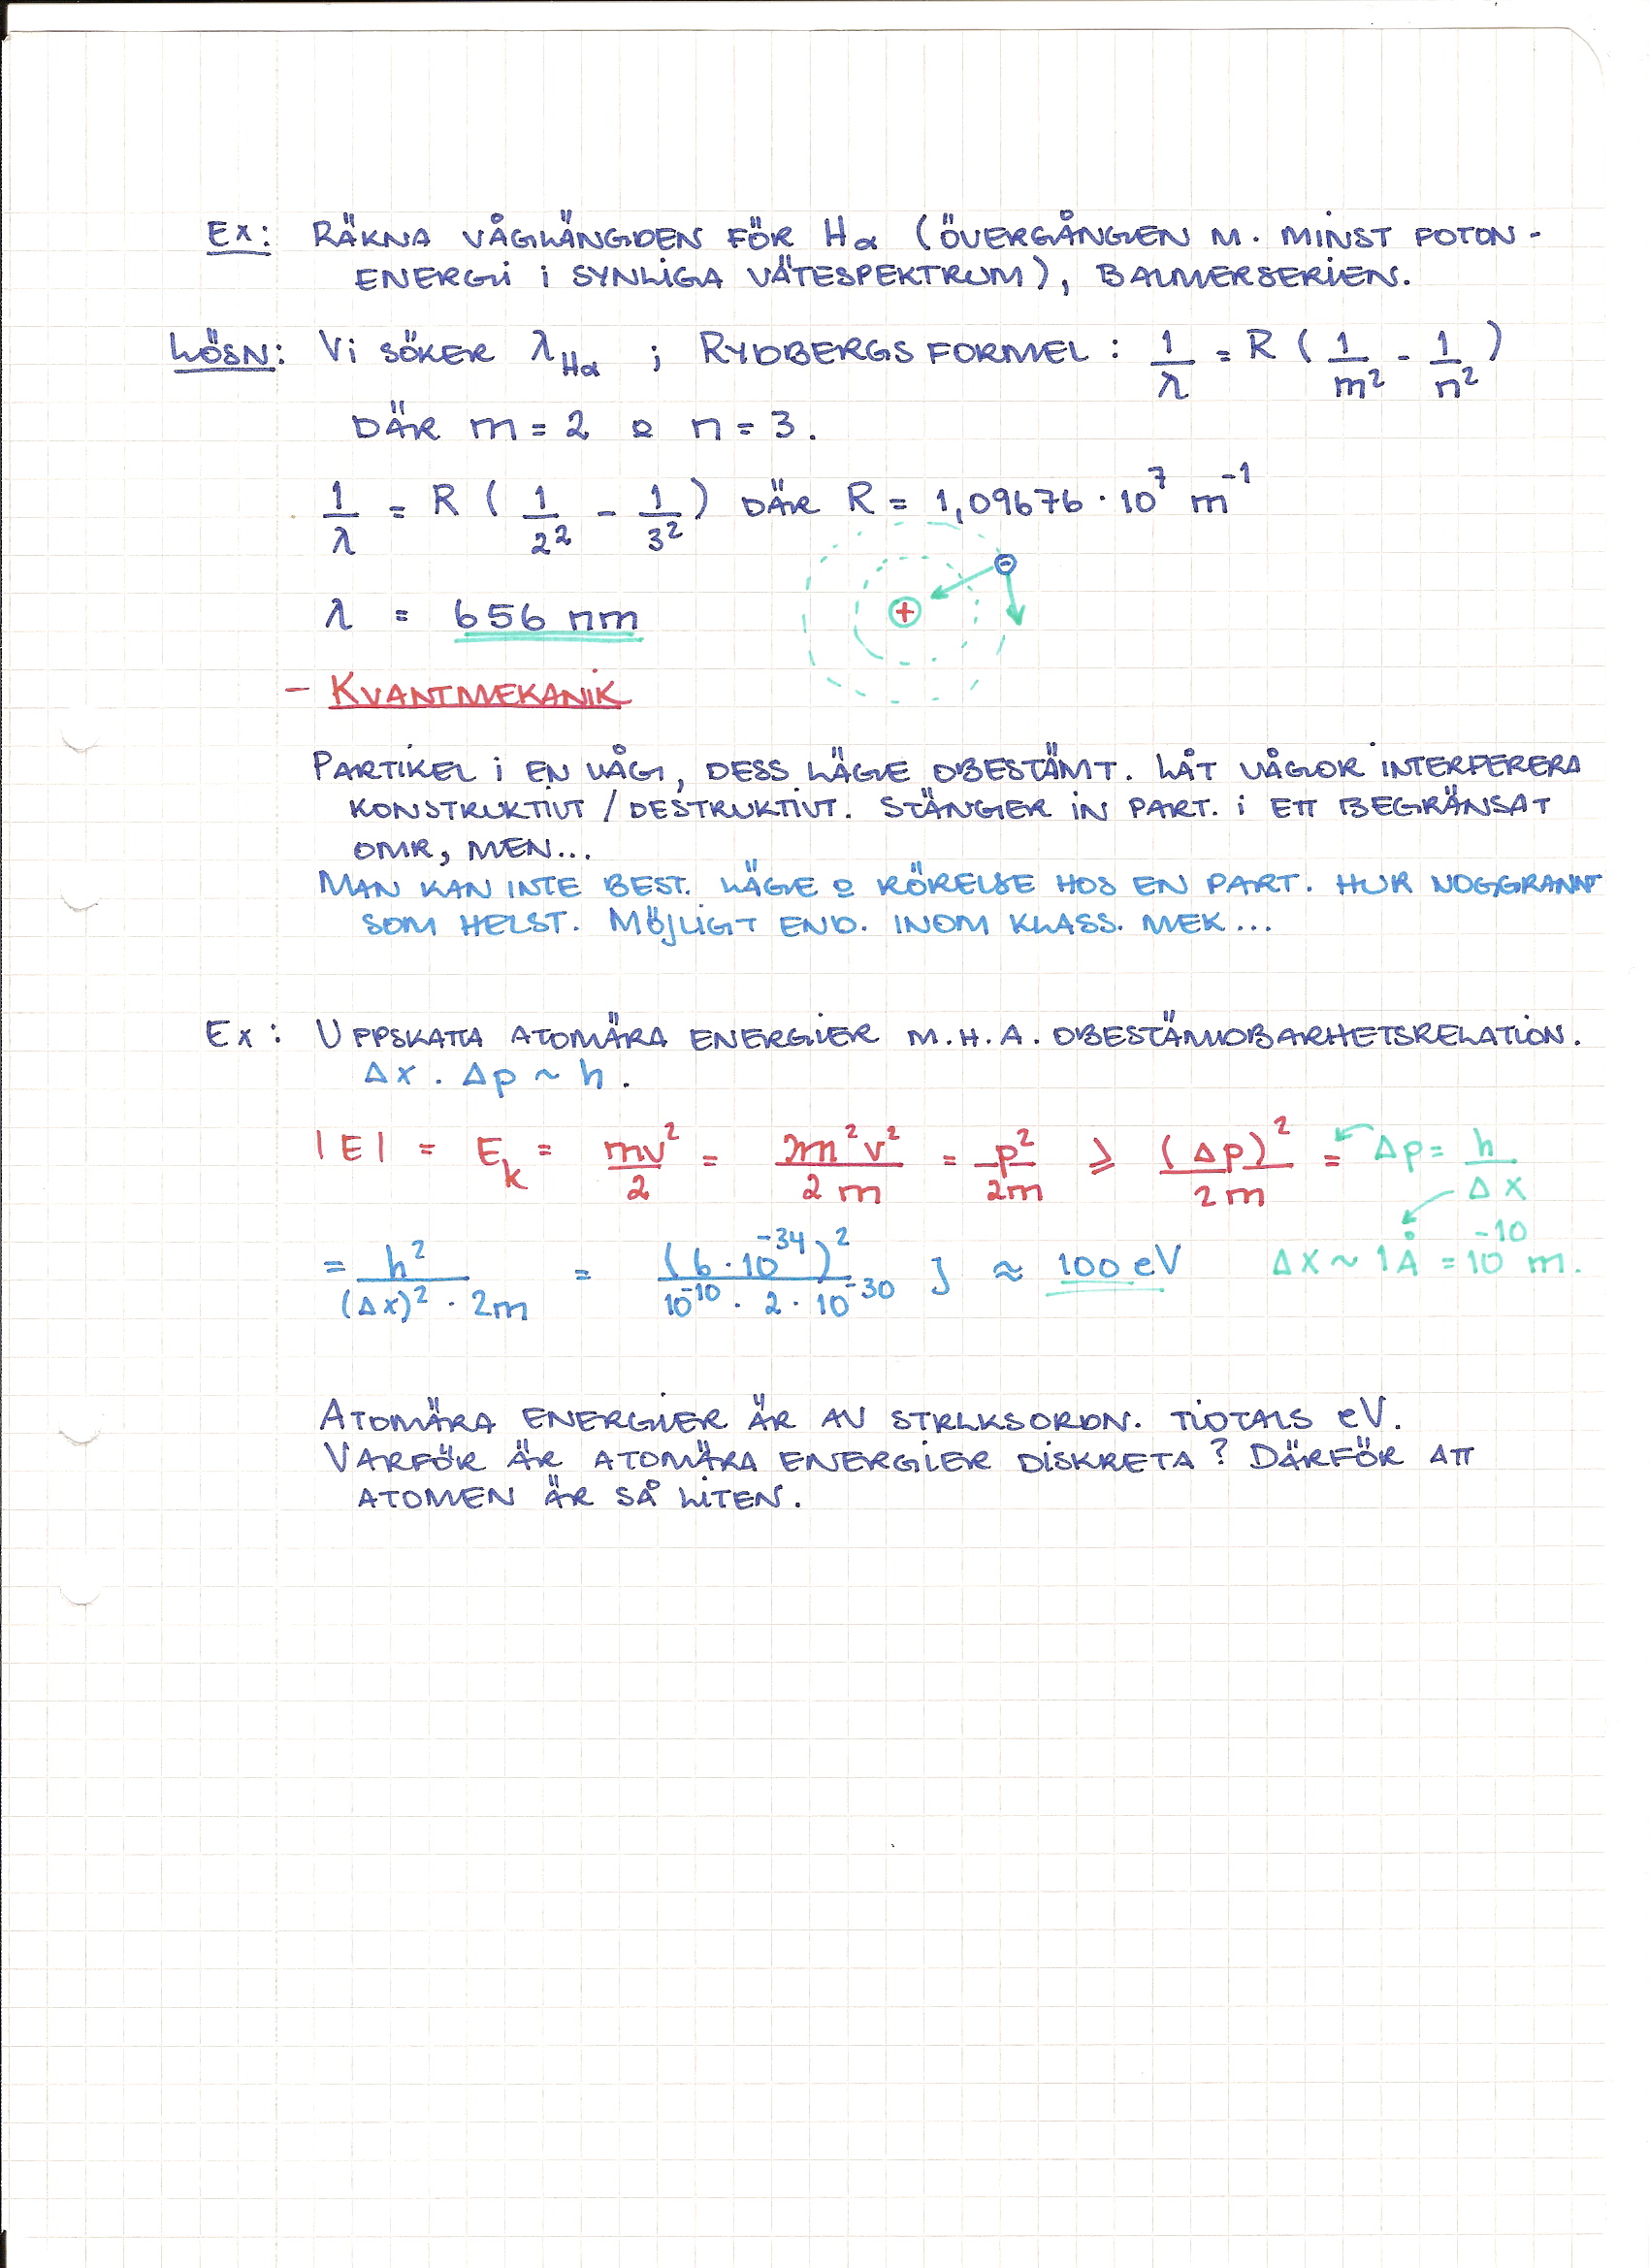 Ex: RÄKNA VÅGLÄNGDEN FÖR Hα (ÖVERGÅNGEN M. MINST FOTON-
ENERGI I SYNLIGA VÄTESPEKTRUM), BALMERSERIEN.
LÖSN: Vi SÖKER λ_Hα ; RYDBERGS FORMEL : 1/λ = R ( 1/m² - 1/n² )
DÄR m = 2 o n = 3.
1/λ = R ( 1/2² - 1/3² ) DÄR R = 1,09676 · 10⁷ m⁻¹
λ = 656 nm
- +
- KVANTMEKANIK
PARTIKEL i EN VÅG, DESS LÄGE OBESTÄMT. LÅT VÅGOR INTERFERERA
KONSTRUKTIVT / DESTRUKTIVT. STÄNGER IN PART. i ETT BEGRÄNSAT
OMR, MEN...
MAN KAN INTE BEST. LÄGE o RÖRELSE HOS EN PART. HUR NOGGRANNT
SOM HELST. MÖJLIGT END. INOM KLASS. MEK...
Ex: UPPSKATTA ATOMÄRA ENERGIER M.H.A. OBESTÄMDBARHETSRELATION.
Δx · Δp ~ h.
|E| = E_k = mv²/2 = m²v²/2m = p²/2m ⩾ (Δp)²/2m = Δp = h/Δx
= h²/((Δx)² · 2m) = (6 · 10⁻³⁴)²/(10⁻¹⁰ · 2 · 10⁻³⁰) J ≈ 100 eV Δx ~ 1Å = 10⁻¹⁰ m.
ATOMÄRA ENERGIER ÄR AV STRLKSORDN. TIOTALS eV.
VARFÖR ÄR ATOMÄRA ENERGIER DISKRETA? DÄRFÖR ATT
ATOMEN ÄR SÅ LITEN.